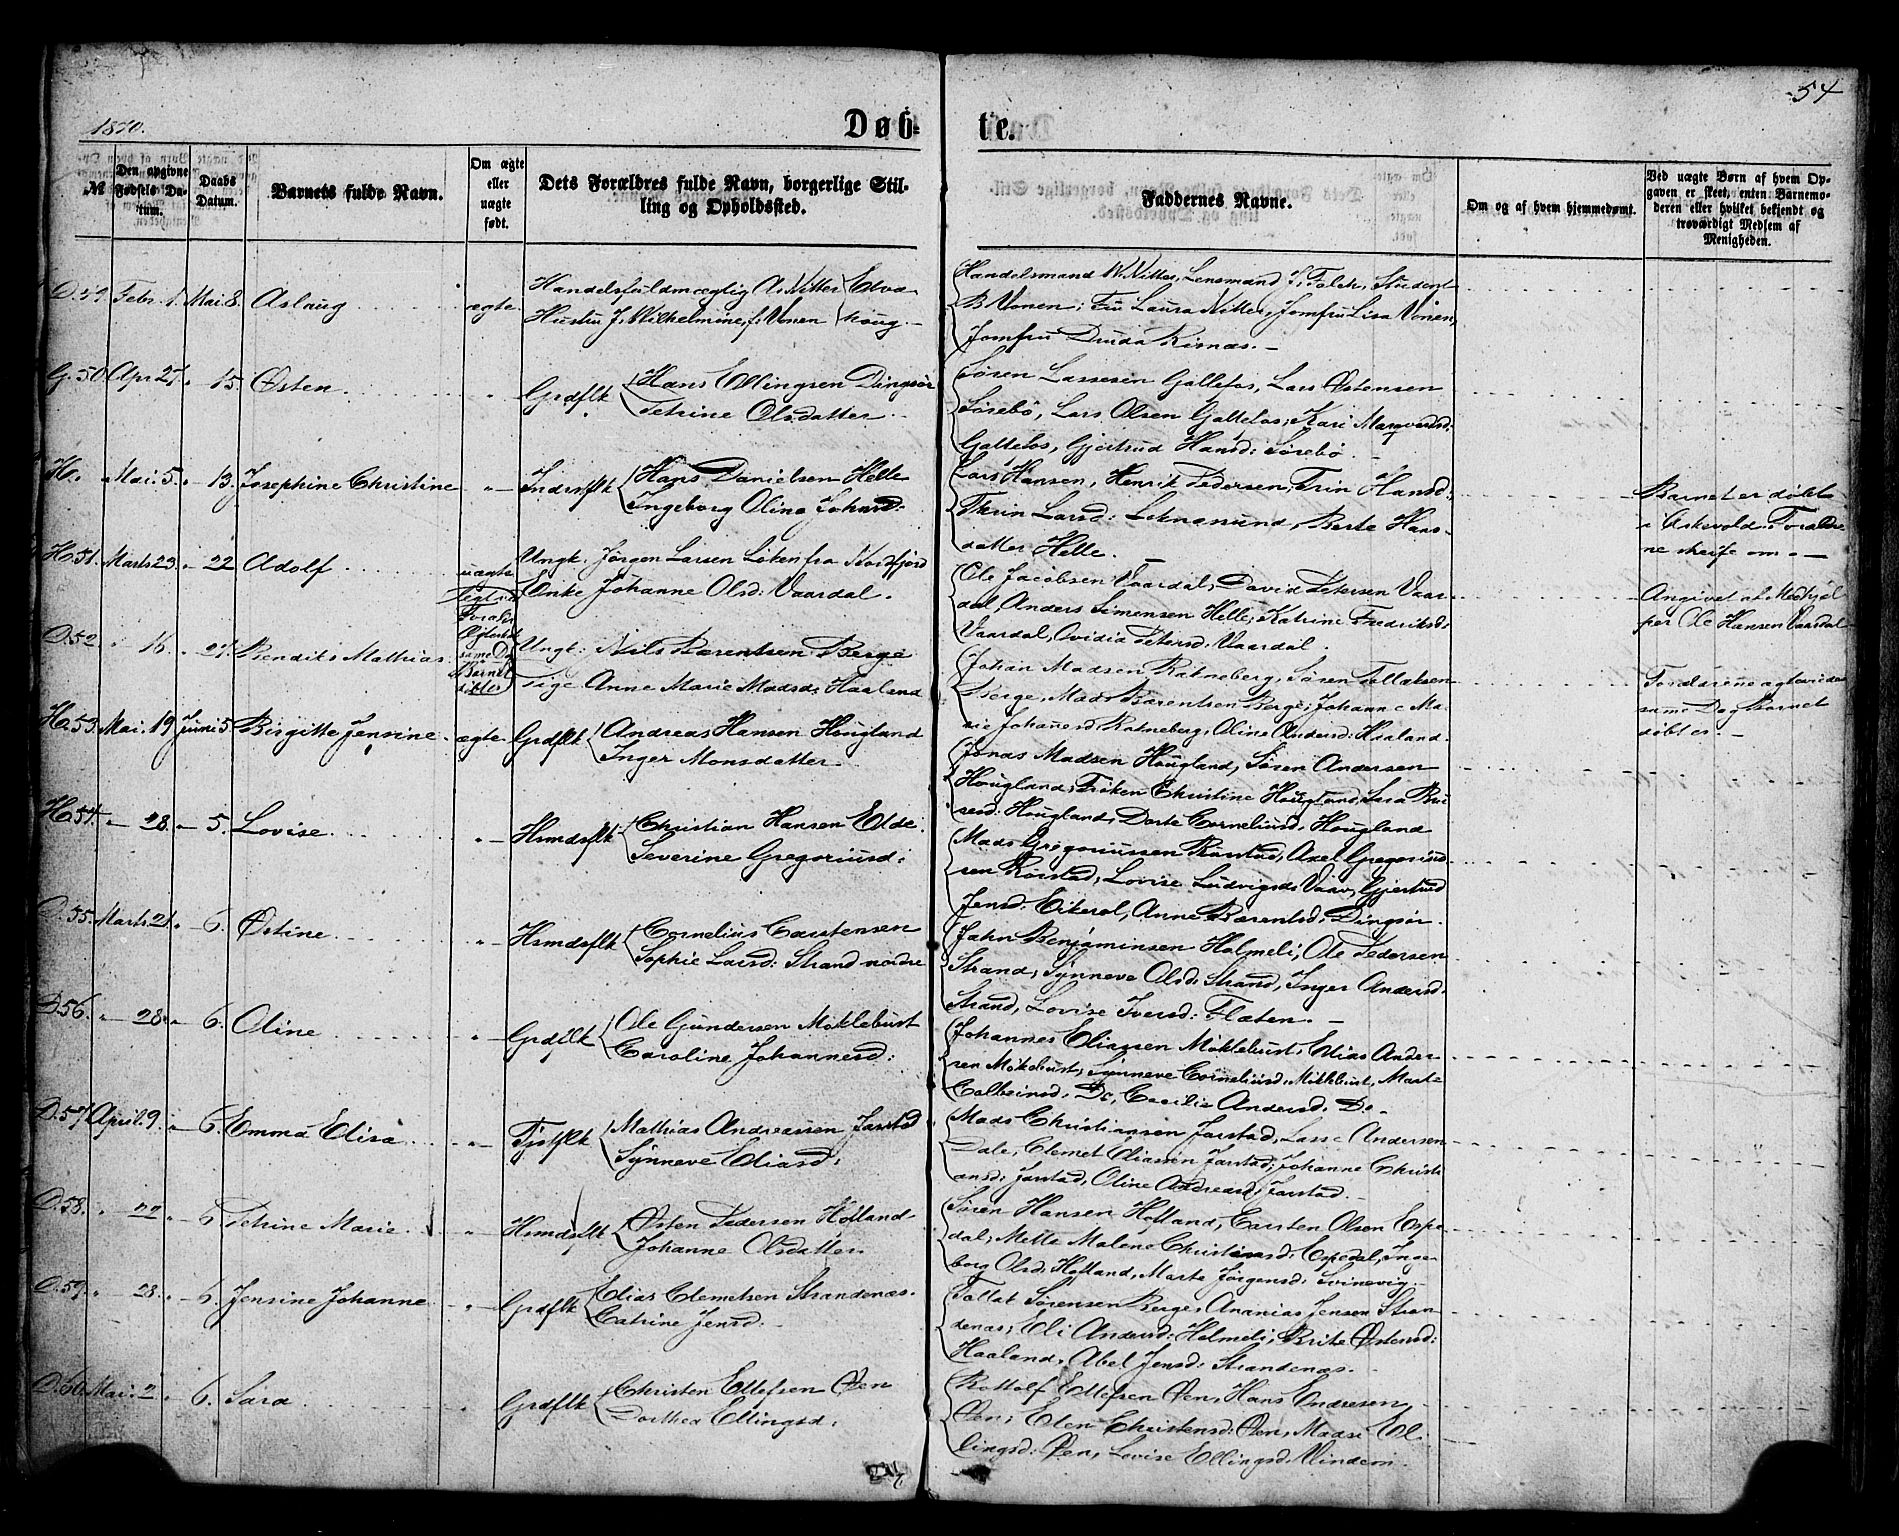 54
1870.
Døb-
te.
№
Den angivne Fødsels Datum.
Daabs Datum.
Barnets fulde Navn.
Om ægte eller uægte født.
Dets Forældres fulde Navn, borgerlige Stilling og Opholdssted.
Faddernes Navne.
Om og af hvem hjemmedømt.
Ved uægte Børn af hvem Opgaven er skeet, enten Barnemoderen eller hvilket bekjendt og troværdigt Medlem af Menigheden.
D. 49 Febr. 1. Mai 8. Aslaug ægte
Handelsfuldmægtig A. Nitter
Hustru J. Wilhelmine, f: Vonen
Handelsmand W. Nitter, Lensmand J. Falck, Student
B. Vonen; Fru Laura Nitter, Jomfru Lisa Vonen,
Jomfru Druda Risnæs. —
G. 50 Apr 27. " 15. Østen " Grdflk
Hans Ellingsen Dingsør
Petrine Olsdatter
Sören Lassesen Galtelos, Lars Østensen
Sörebö, Lars Olsen Galtelos; Kari Marqvardsd:
Galtelos, Gjertrud Hansd: Sörebö. —
H. " Mai 5. " 13. Josephine Christine "
Hans Danielsen Helle
Ingeborg Olina Johnsd:
Lars Hansen, Henrik Pedersen; Trin Hansd:
Thrin Larsd: Leknesund, Berte Hans-
datter Helle. —
Barnet er döbt
i Askvold. Foræld-
H. 51. Marts 23. " 22 Adolf uægte
Ungk. Jörgen Larsen Löken fra Nordfjord
Enke Johanne Olsd: Vaardal.
Ole Jacobsen Vaardal, David Petersen Vaar-
dal, Anders Simensen Helle; Katrine Fredriksd:
Vaardal, Ovidia Petersd: Vaardal.
Angivet af Medhjæl
per Ole Hansen Vaardal
D. 52 " 16. " 29. Bendik Mathias
Ungk: Nils Bærentsen Berge
Pige Anne Marie Madsd: Haaland
Johan Madsen Ratneberg, Sören Tollaksen
Berge, Mads Bærentsen Berge; Johanne Ma-
rie Johannesd: Ratneberg, Oline Andersd: Haaland.
Forældrene ægteviede
samme Dag Barnet
döbt er. —
H. 53. Mai 19 Juni 5. Birgitte Jensine ægte Grdflk
Andreas Hansen Hougland
Inger Monsdatter
Jonas Madsen Hougland, Sören Andersen
Hougland; Fröken Christine Hougland,
Hougland, Dorte Corneliusd: Hougland
H. 54. — 28. — 5. Lovise " Hsmdsflk
Christian Hansen Elde
Severine Gregoriusd:
Mads Gregoriussen Rörstad, Axel Gregorius-
sen Rörstad; Lovise Ludvigsd: Gjertrud
Jensd: Eikerol, Anne Bærentsd: Dingsör
D. 55. Marts 21. " 6. Østine " Hsmdsflk
Cornelius Carstensen
Sophie Larsd: Strand nordre
John Benjaminsen Holmeli, Ole Pedersen
Strand; Synneve Olsd: Strand, Inger Andersd:
Strand, Lovise Iversd: Flæten. —
D. 56. " 28. " 6. Oline " Grdflk
Ole Gundersen Möklebust
Caroline Johannesd:
Johannes Eliassen Möklebust, Elias Ander-
sen Möklebust; Synneve Corneliusd: Möklebust, Marte
Colbeinsd: Do, Cecilie Andersd: Do —
D. 57 April 9. " 6. Emma Elisa " Tjstflk
Mathias Andreassen Jarstad
Synneve Eliasd:
Mads Christiansen Jarstad, Lasse Andersen
Dale, Clemet Eliassen Jarstad; Johanne Christi-
ansd: Jarstad, Oline Andreasd: Jarstad. —
D. 58. " 22 " 6. Petrine Marie " Hsmdsflk
Østen Pedersen Hofland
Johanne Olsdatter
Sören Hansen Hofland, Carsten Olsen Espe-
dal; Mette Malene Christiansd: Espedal, Inge-
borg Olsd: Hofland, Marte Jörgensd: Svinevig. —
D. 59. " 28. " 6. Jensine Johanne " Grdflk
Elias Clemetsen Strandenæs
Catrine Jensd:
Tollak Sörensen Berge, Ananias Jensen Stran-
denæs; Eli Andersd: Holmeli; Brite Østensd:
Haaland, Abel Jensd: Strandenæs. —
D. 60 Mai 2. " 6. Sara " Grdflk
Christen Ellefsen Øen
Dorthea Ellingsd:
Rottolf Ellefsen Øen, Hans Endresen
Øen; Elen Christensd: Øen, El-
lingsd: Øen, Lovise Ellingsd: